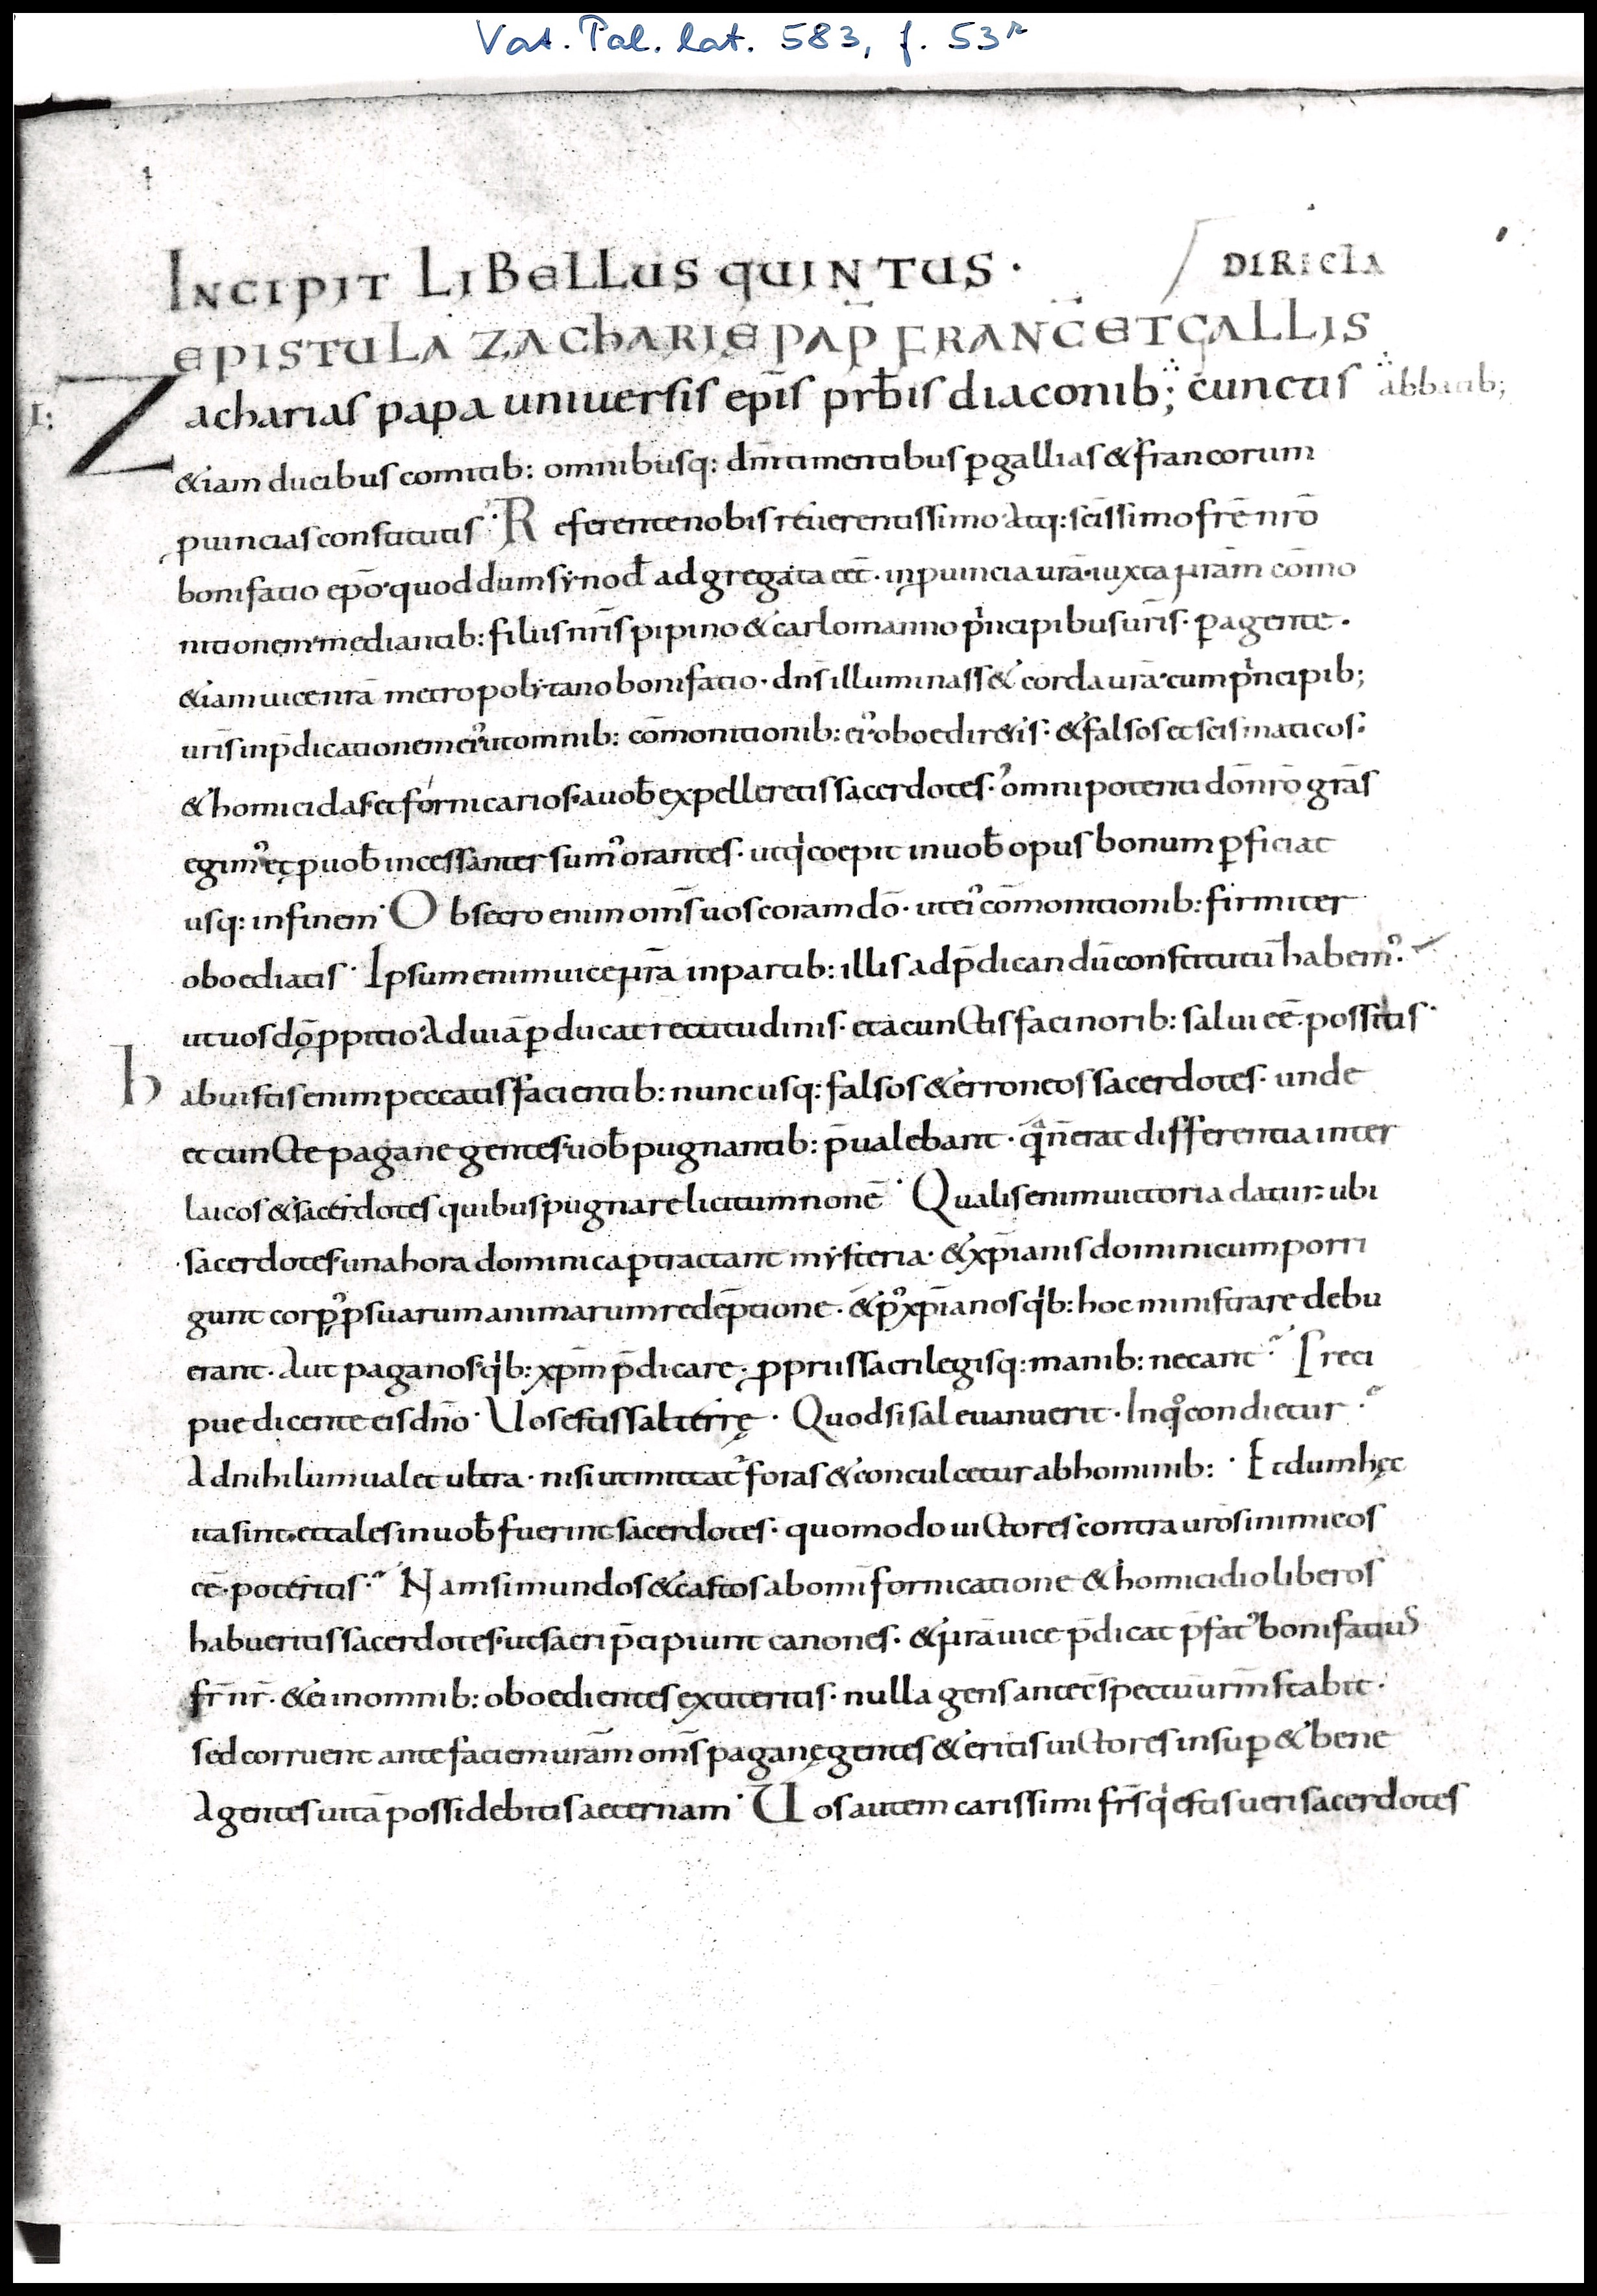 Vat. Pal. lat. 583, f. 53r
INCIPIT LIBELLUS QUINTUS · DIRECTA
EPISTULA ZACHARIE PAP̄ FRANC̄ ET GALLIS
I; Zacharias papa uniuersis ep̄is prb̄is diaconib; cunctis abbatib;
&iam ducibus comitib: omnibusq: dm̄ timentibus ꝑ gallias & francorum
ꝓuincias constitutis · Referente nobis reuerentissimo atq: sc̄issimo fr̄e nr̄o
bonifatio ep̄o · quod dum synod̄ adgregata eēt · in ꝓuincia ur̄a · iuxta nr̄am com̄o
nitionem · mediantib: filiis nr̄is pipino & carlomanno pͥncipibus ur̄is · ꝑagente ·
&iam uice nr̄a metropolytano bonifatio · dn̄s illuminass& corda ur̄a · cum pͥncipib;
ur̄is in p̄dicationem eiꝰ · ut omnib: com̄onitionib: eiꝰ oboedir&is · & falsos et scismaticos ·
& homicidas · et fornicarios · a uob̄ expelleretis sacerdotes · omnipotenti dō nr̄o gr̄as
egimꝰ · et ꝓ uob̄ incessanter sumꝰ orantes · ut qͥ coepit in uob̄ opus bonum ꝑficiat
usq: in finem · Obsecro enim om̄s uos coram dō · ut eiꝰ com̄onitionib: firmiter
oboediatis · Ipsum enim uice nr̄a in partib: illis ad p̄dicandū constitutū habemꝰ ·
ut uos dō ꝓpitio · ad uiā ꝑducat rectitudinis · et a cunctis facinorib: salui eē · possitis ·
habuistis enim peccatis facientib: nunc usq: falsos & erroneos sacerdotes · unde
et cuncte pagane gentes · uob̄ pugnantib: p̄ualebant · qᷓ n̄ erat differentia inter
laicos & sacerdotes quibus pugnare licitum non ē · Qualis enim uictoria datur · ubi
sacerdotes · una hora dominica ꝑtractant mysteria · & xp̄ianis dominicum porri
gunt corpꝰ ꝓ suarum animarum redēptione · & pꝰ xp̄ianos qͥb: hoc ministrare debu
erant · Aut paganos · qͥb: xp̄m p̄dicare · ꝓpriis sacrilegisq: manib: necant · Preci
pue dicente eis dn̄o · Uos estis sal terrę · Quod si sal euanuerit · In qͦ condietur ·
Ad nihilum ualet ultra · nisi ut mittatꝰ foras & conculcetur ab hominib: · Et dum hęc
ita sint · et tales in uob̄ fuerint sacerdotes · quomodo uictores contra ur̄os inimicos
eē · poteritis · Nam si mundos & castos ab omī fornicatione & homicidio liberos
habueritis sacerdotes · ut sacri p̄cipiunt canones · & nr̄a uice p̄dicat p̄fatꝰ bonifatius
fr̄ nr̄ · & ei in omnib: oboedientes extiteritis · nulla gens ante cs̄pectū ur̄m stabit ·
sed corruent ante faciem ur̄am om̄s paganę gentes & eritis uictores insuꝑ & bene
agentes uitā possidebitis aeternam · Uos autem carissimi fr̄s qͥ estis ueri sacerdotes